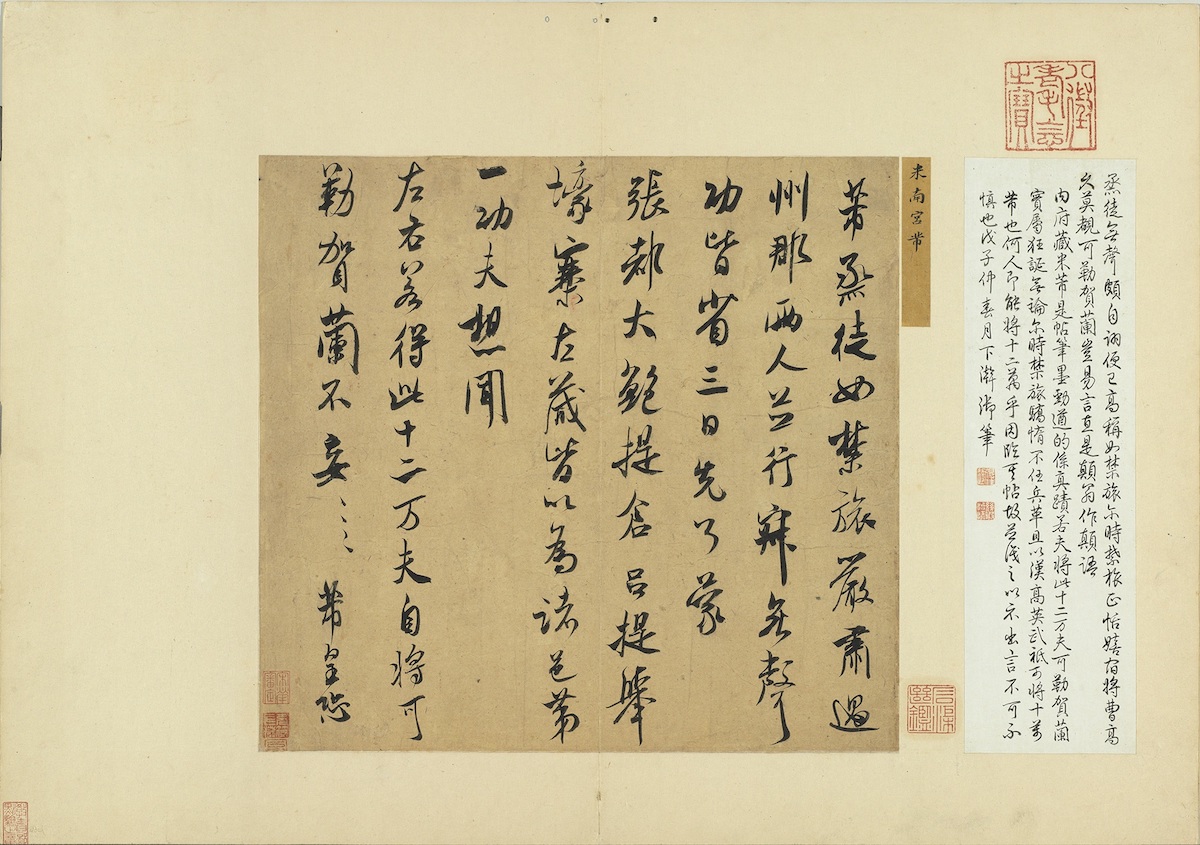 八徵耄念之寶
烝徒無聲頗自詡便已高稱如禁旅尔時禁旅正恬嬉宿將曹高
久莫覩可勒賀蘭豈易言直是顛翁作顛語
内府藏米芾是帖筆墨勁遒的係真蹟若夫將此十二万夫可勒賀蘭
實屬狂誕無論尔時禁旅驕惰不任兵革且以漢高英武祇可將十萬
芾也何人即能將十二萬乎因臨其帖故並識之以示出言不可不
慎也戊子仲春月下澣御筆
米南宮芾
芾烝徒如禁旅嚴肅過
州郡兩人並行寂無聲
功皆省三日先了蒙
張都大鮑提倉呂提舉
壕寨左藏皆以為諸邑第
一功夫想聞
左右若得此十二万夫自將可
勒賀蘭不妄〻〻 芾皇恐